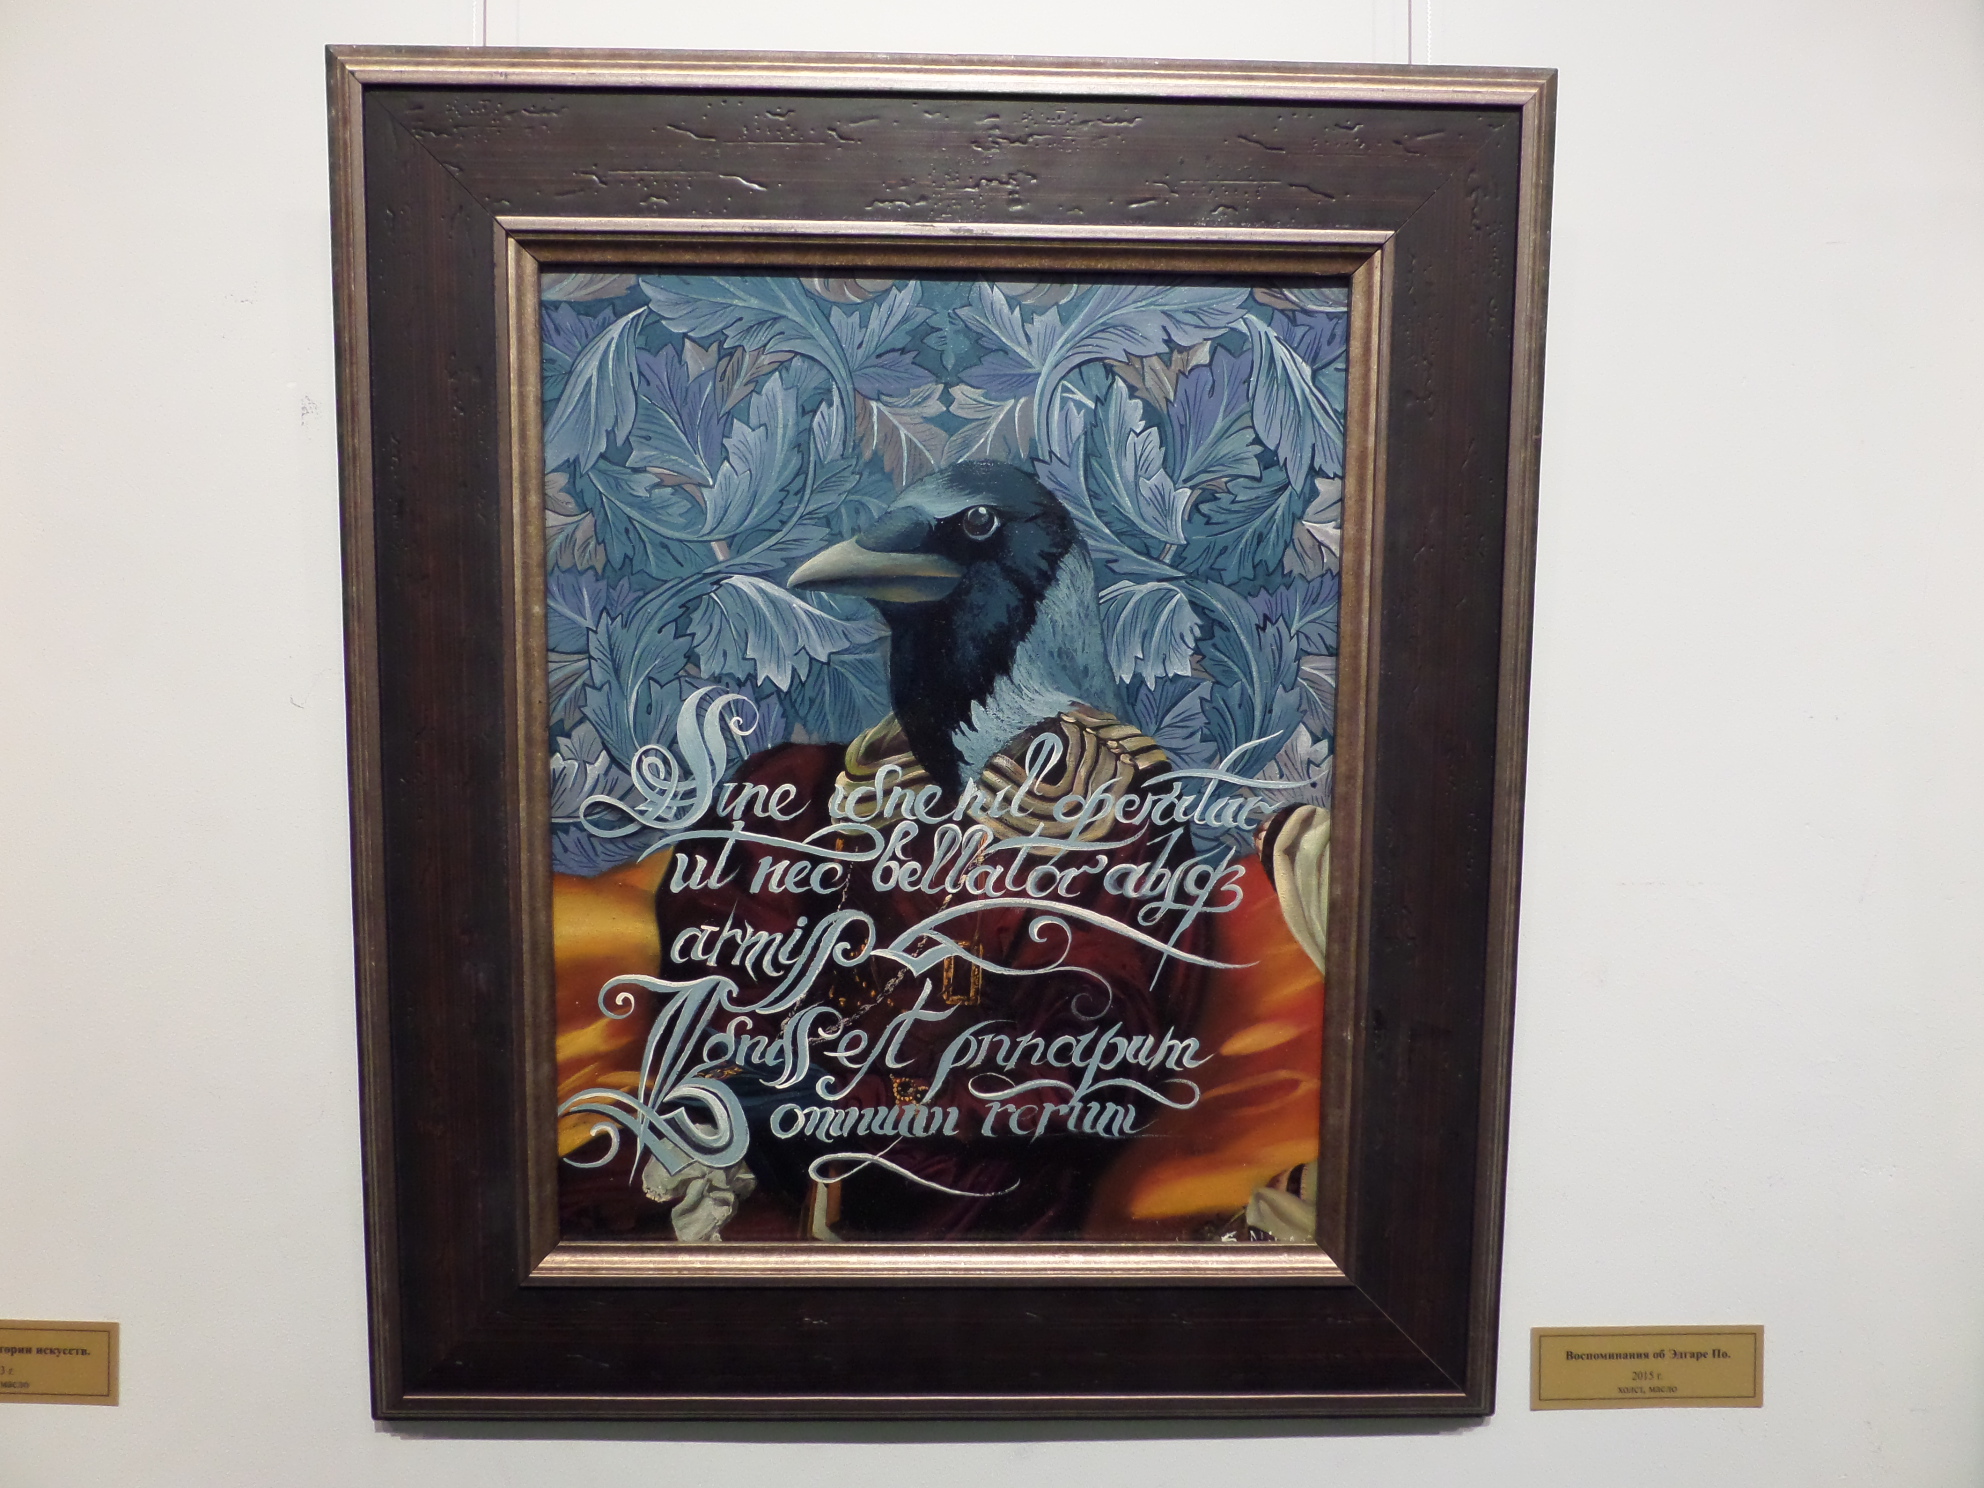 Sine igne nil operatur
ut nec bellator absqz
armiss
Ignis est principum
omnium rerum
тории искусств.
3 г.
масло
Воспоминания об Эдгаре По.
2015 г.
холст, масло